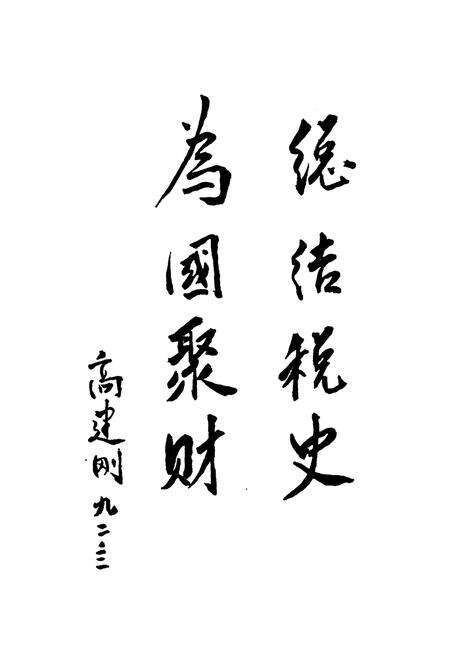 總结税史
為國聚财
高建刚 九二·三